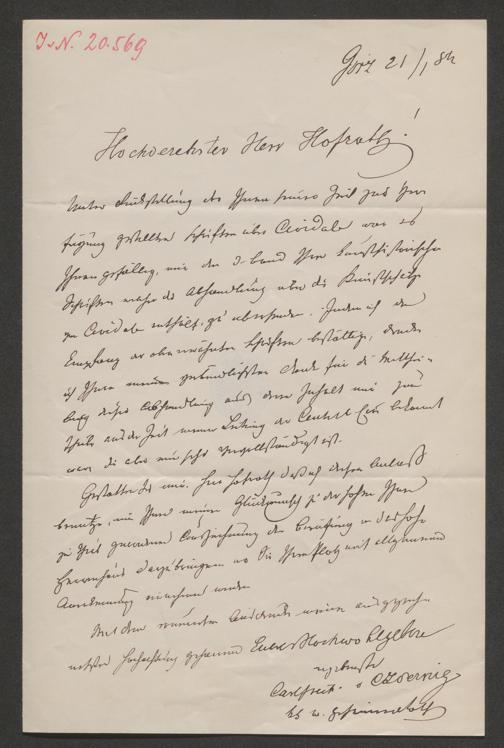 I.N. 20.569
Görz 21/1 84
Hochverehrter Herr Hofrath!
Unter Rückstellung der Ihnen seiner Zeit zur Ver
fügung gestellten Schriften über Cividale war es
Ihnen gefällig, mir den 3. Band Ihrer kunsthistorischen
Schriften welche die Abhandlung über die Kunstschätze
zu Cividale enthält, zu übersenden. Indem ich den
Empfang der oben erwähnten Schriften bestätige, danke
ich Ihnen für die
dieser Abhandlung als deren Inhalt mir zum
Theile aus der Zeit meiner Leitung der Central Com bekannt
war, die aber nun sehr vervollständigt ist.
Gestatten Sie mir, Herr Hofrath daß ich diesen Anlaß
benutze, um Ihnen meinen Glückwunsch zu der hohen Ihnen
zu Theil gewordenen Auszeichnung der Berufung in das hohe
Herrenhaus darzubringen wo Sie Ihren Platz mit allgemeiner
Anerkennung einnehmen werden
Mit dem Ausdrucke meiner ausgezeich
netsten Hochachtung Euer Hochwohlgeboren
ergebenster
Carl Freih. v Czoernig
k.k. w. geheimer Rath